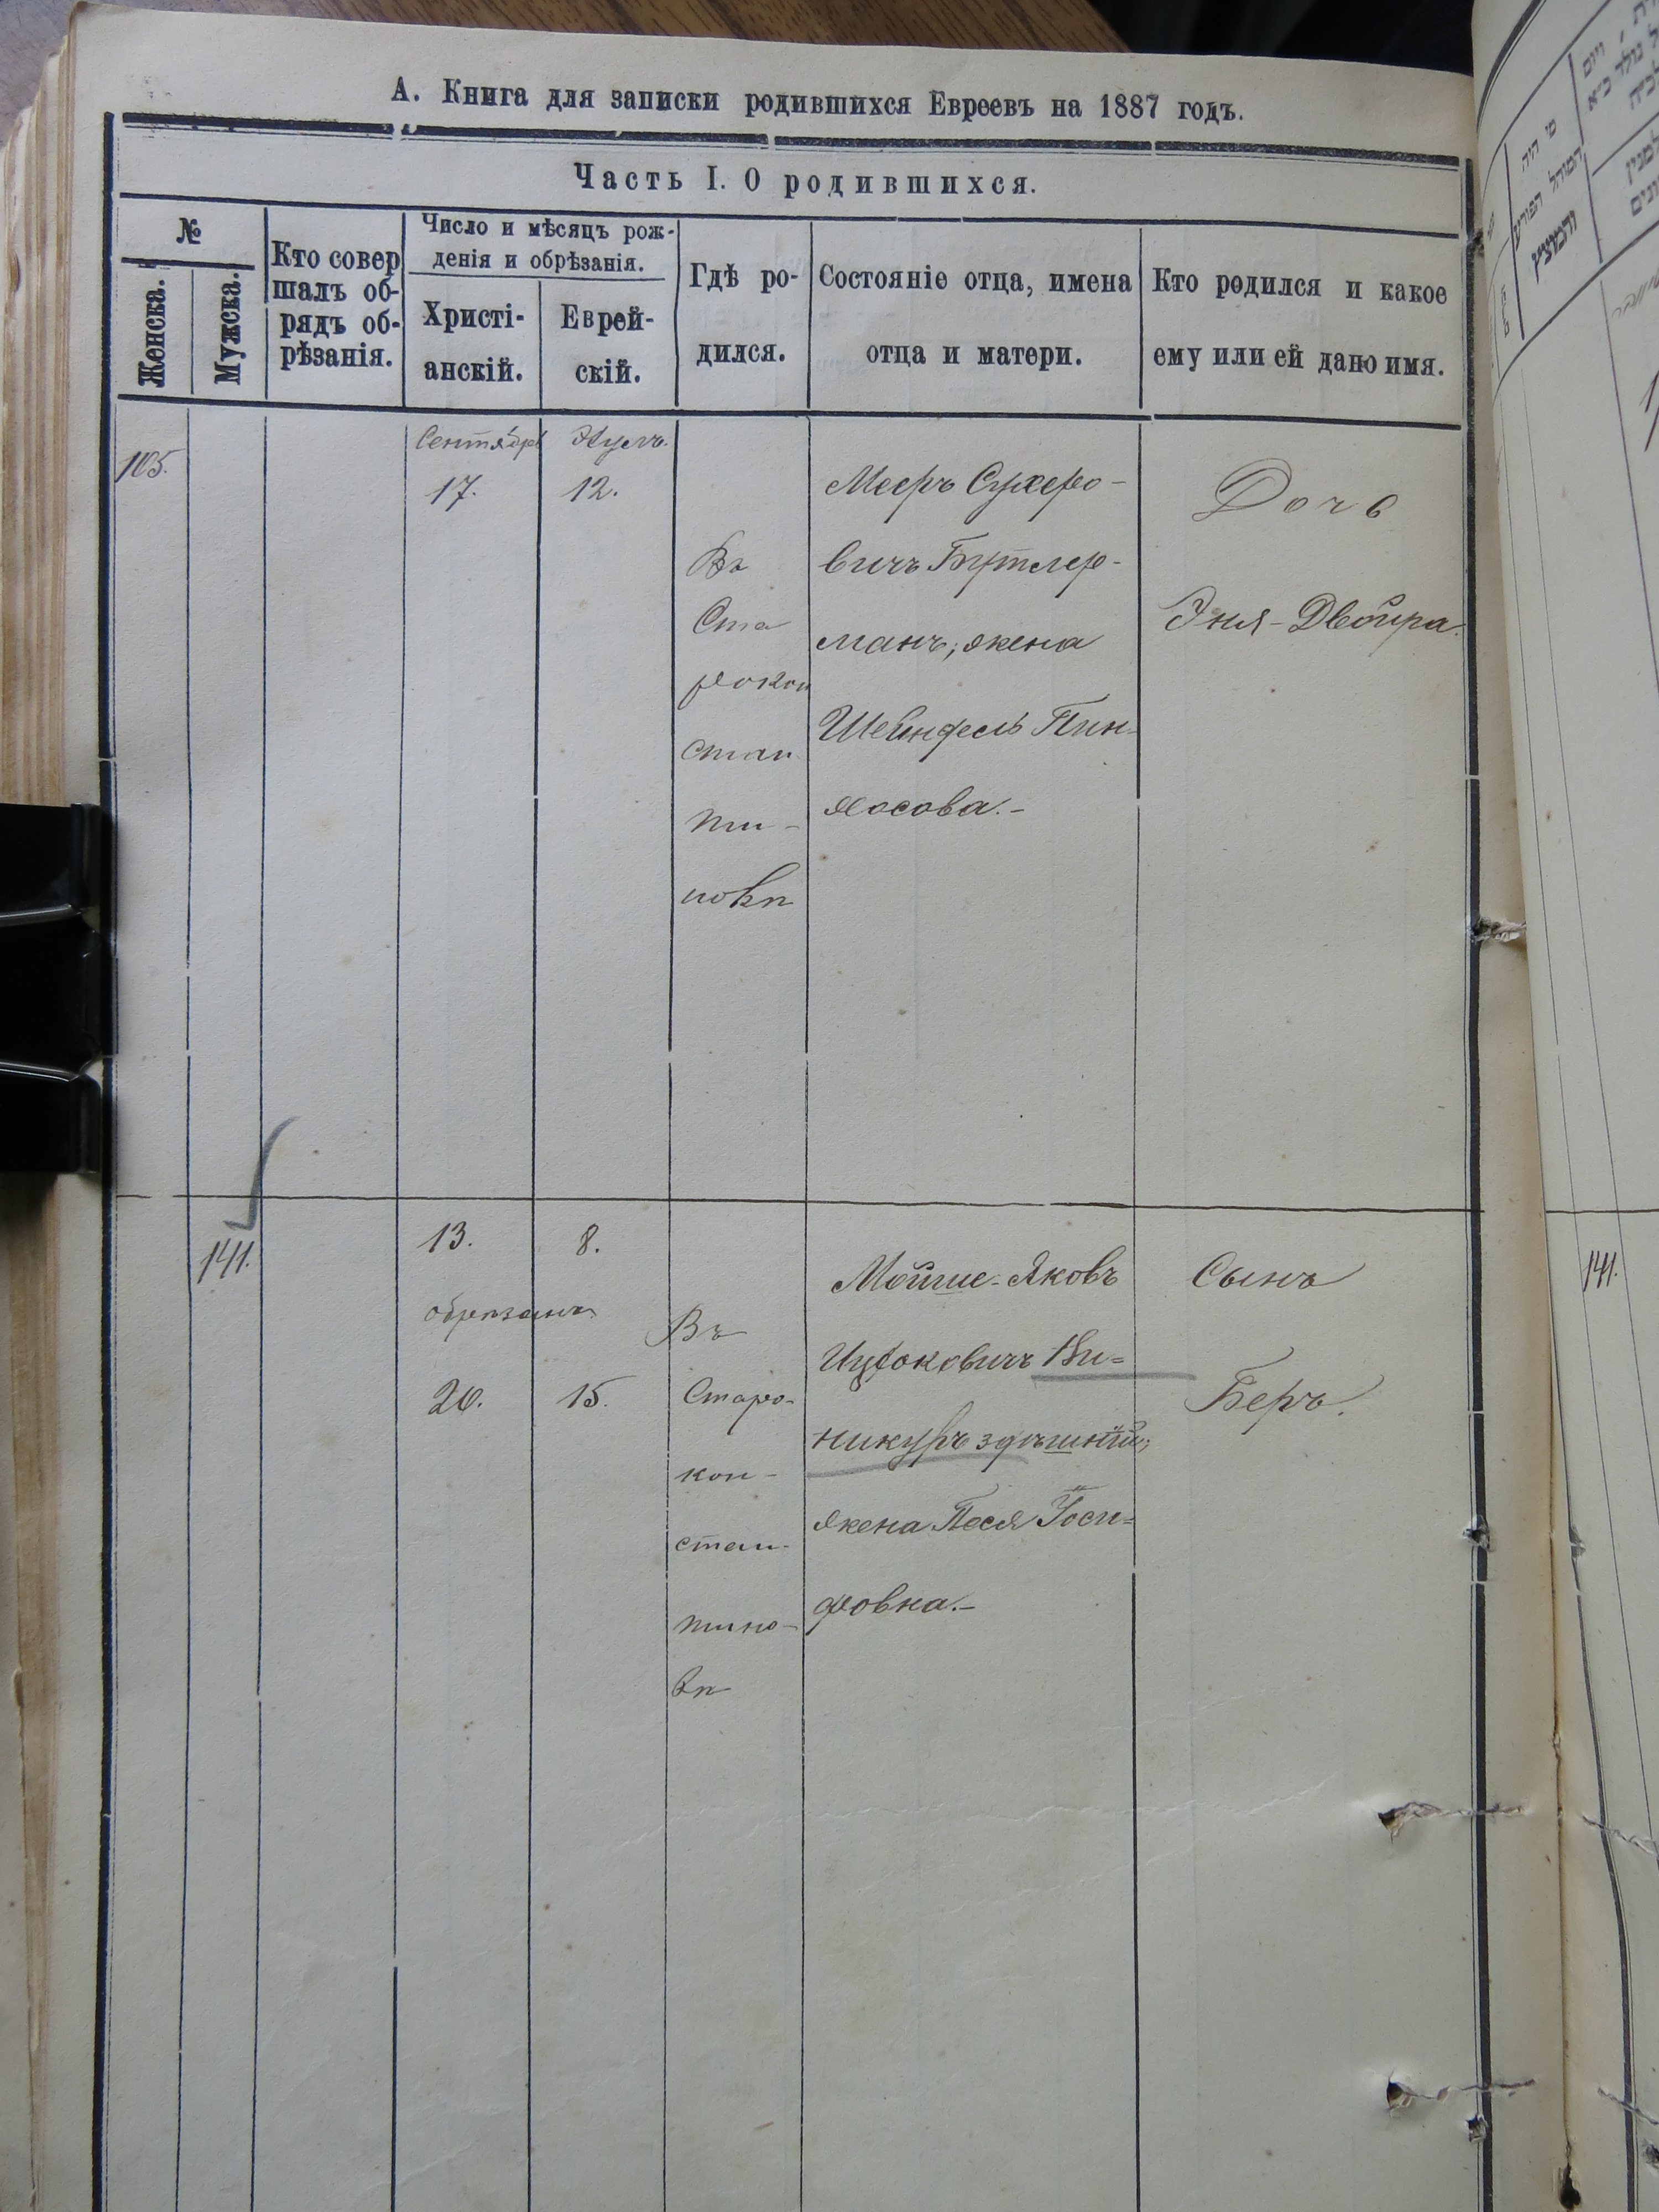 А. Книга для записки родившихся Евреевъ на 1887 годъ.
Часть I. О родившихся.
№
Женска.
Мужска.
Кто совер
шалъ об-
рядъ об-
рѣзанія.
Число и мѣсяцъ рож-
денія и обрѣзанія.
Христі-
анскій.
Еврей-
скій.
Гдѣ ро-
дился.
Состояніе отца, имена
отца и матери.
Кто родился и какое
ему или ей дано имя.
105.
Сентября
17.
12.
Въ
Ста
рокон
стан
ти-
новѣ
Мееръ Сухеро-
вичъ Бутлер-
манъ, жена
Шейндель Пин-
хосова.-
Дочь
Эня-Двойра.
141.
13.
обрѣзанъ
20.
8.
15.
Въ
Старо-
кон-
стан-
тино-
вѣ
Мойше-Яковъ
Ицковичъ Ви=
никуръ здѣшній;
жена Песя Іоси=
фовна.-
Сынъ
Беръ.
141.
מי היה
המוהל והפורע
והמוצץ